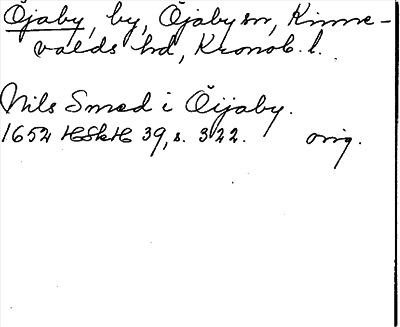 Öjaby, by, Öjaby sn, Kinne-
valds hd, Kronob. l.
Nils Smed i Öijaby.
1654 HSkH 39, s. 322. orig.